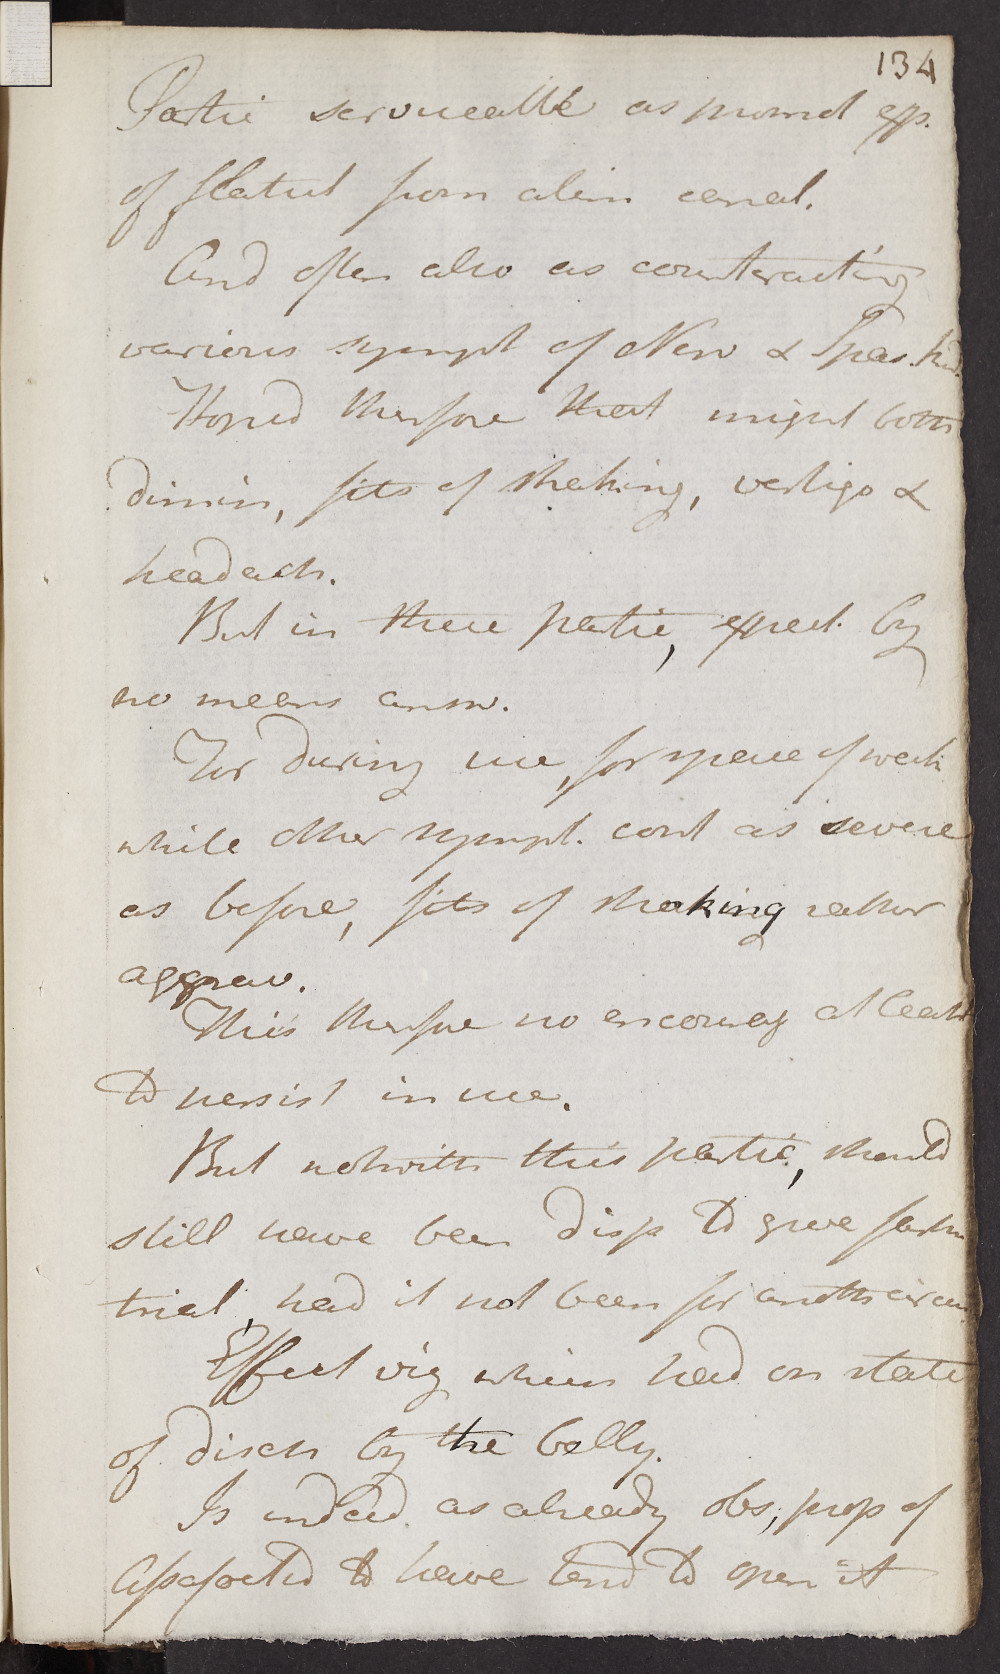 134
Partic serviceable as promot exp.
of flatus from alim canal.
And often also as counteracting
various sympt of Nerv & Spas. kind.
Hoped therfore that might both
dimin, fits of shaking, vertigo &
headach.
But in these partic, expect. by
no means answ.
For during use, for space of week
while other sympt. cont as severe
as before, fits of shaking rather
aggrav.
This therfore no encourag at least
to persist in use.
But notwith this partic, should
still have been disp to give farther
trial, had it not been for anothr circum
Effect viz which had on state
of disch by the belly.
Is indeed as already obs, prop of
Assafoetid to have tend to open it